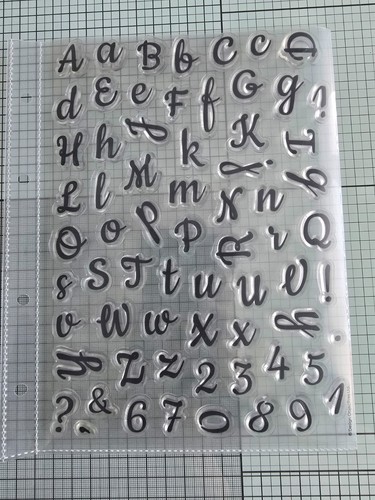 A a B b C c D
d E e F f G g ?
H h J k K I
L l M m j N n q
O o p P R r Q
s S T t u U V !
v W w X x y .
y Z z 2 3 4 5
? & , 6 7 0 8 9 1